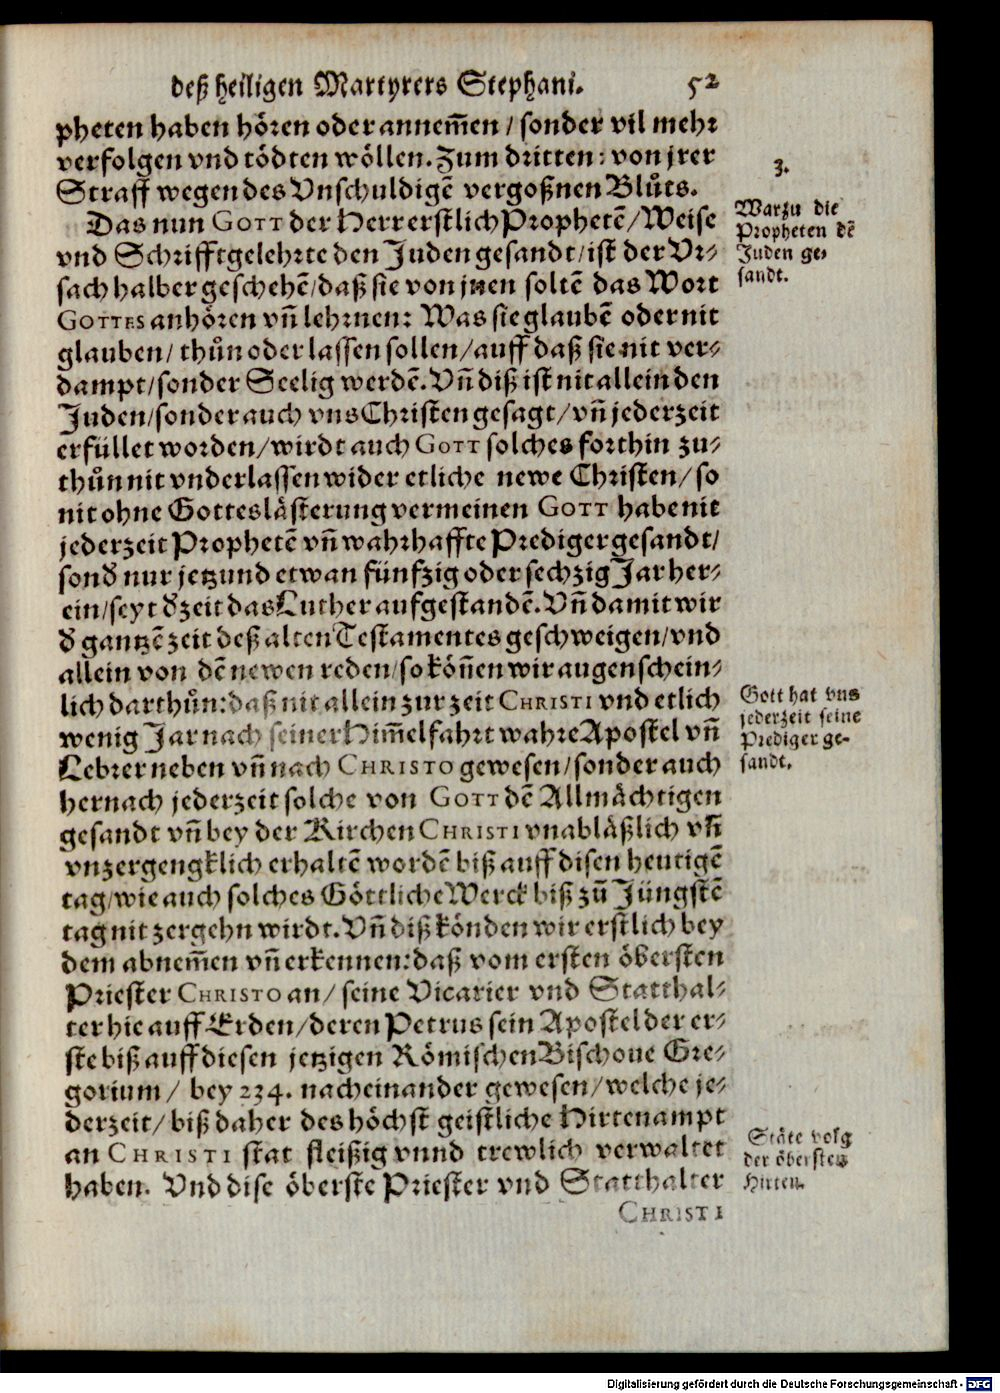 deß heiligen Martyrers Stephani. 52
pheten haben hören oder annem̃en / sonder vil mehr
verfolgen vnd tödten wöllen. Zum dritten: von jrer
Straff wegen des Vnschuldigẽ vergoßnen Blůts.
3.
Das nun GOTT der Herr erstlich Prophetẽ / Weise
vnd Schrifftgelehrte den Juden gesandt / ist der Vr⸗
sach halber geschehẽ / daß sie von jnen soltẽ das Wort
GOTTES anhören vñ lehrnen: Was sie glaubẽ oder nit
glauben / thůn oder lassen sollen / auff daß sie nit ver⸗
dampt / sonder Seelig werdẽ. Vñ diß ist nit allein den
Juden / sonder auch vns Christen gesagt / vñ jederzeit
erfüllet worden / wirdt auch GOTT solches forthin zu⸗
thůn nit vnderlassen wider etliche newe Christen / so
nit ohne Gotteslästerung vermeinen GOTT habe nit
jederzeit Prophetẽ vñ wahrhaffte Prediger gesandt /
sond̕ nur jetzund etwan fünfzig oder sechzig Jar her⸗
ein / seyt d̕ zeit das Luther aufgestandẽ. Vñ damit wir
d̕ gantzẽ zeit deß alten Testamentes geschweigen / vnd
allein von dẽ newen reden / so köñen wir augenschein⸗
lich darthůn: daß nit allein zur zeit CHRISTI vnd etlich
wenig Jar nach seiner Him̃elfahrt wahre Apostel vñ
Lehrer neben vñ nach CHRISTO gewesen / sonder auch
hernach jederzeit solche von GOTT dẽ Allmächtigen
gesandt vñ bey der Kirchen CHRISTI vnabläßlich vñ
vnzergengklich erhaltẽ wordẽ biß auff disen heutigẽ
tag / wie auch solches Göttliche Werck biß zũ Jüngstẽ
tag nit zergehn wirdt. Vñ diß könden wir erstlich bey
dem abnem̃en vñ erkennen: daß vom ersten öbersten
Priester CHRISTO an / seine Vicarier vnd Statthal⸗
ter hie auff Erden / deren Petrus sein Apostel der er⸗
ste biß auff diesen jetzigen Römischen Bischoue Gre⸗
gorium / bey 234. nacheinander gewesen / welche je⸗
derzeit / biß daher des höchst geistliche Hirtenampt
an CHRISTI stat fleißig vnnd trewlich verwaltet
haben. Vnd dise öberste Priester vnd Statthalter
CHRISTI
Warzu die
Propheten dẽ
Juden ge⸗
sandt.
Gott hat vns
jederzeit seine
Prediger ge⸗
sandt.
Stäte volg
der öbersten
Hirten.
Digitalisierung gefördert durch die Deutsche Forschungsgemeinschaft - DFG